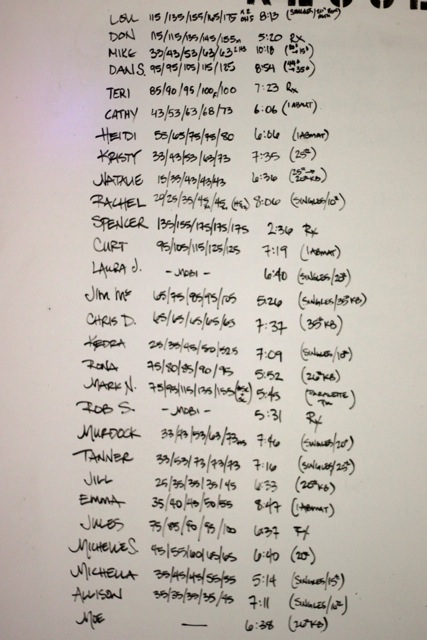 LOU 115/135/155/165/175 8:13
DON 115/115/135/145/155 5:20 RX
MIKE 33/43/53/63/63 10:18
DAN S. 95/95/105/115/125 8:54
TERI 85/90/95/100/100 7:23 Rx
CATHY 43/53/63/68/73 6:06 (1ABMAT)
HEIDI 55/65/75/75/80 6:06 (1ABMAT)
KRISTY 33/43/53/63/73 7:35 (25#)
NATALIE 15/33/43/43/43 6:36
RACHEL 8:06 (SINGLES/10#)
SPENCER 135/155/175/175/175 2:36 Rx
CURT 95/105/115/125/125 7:19 (1ABMAT)
LAURA J. - MOBI - 6:40 (SINGLES/20#)
JIM Mc 65/75/85/95/105 5:26 (SINGLES/35#KB)
CHRIS D. 65/65/65/65/65 7:37 (35#KB)
KEDRA 25/35/45/50/52.5 7:09 (SINGLES/10#)
RONA 75/80/85/90/95 5:52 (26#KB)
MARK N. 75/95/115/135/155 5:45
ROB S. - MOBI - 5:31 Rx
MURDOCK 33/43/53/63/73 7:46 (SINGLES/20#)
TANNER 33/53/73/73/73 7:16 (SINGLES/25#)
JILL 25/35/35/35/45 6:33 (20#KB)
EMMA 35/40/45/50/55 8:47 (1ABMAT)
JULES 75/85/90/95/100 6:37 Rx
MICHELLE S. 45/55/60/65/65 6:40 (20#)
MICHELLA 35/45/45/55/55 5:14 (SINGLES/15#)
ALLISON 35/35/35/35/45 7:11
MOE — 6:38 (26#KB)